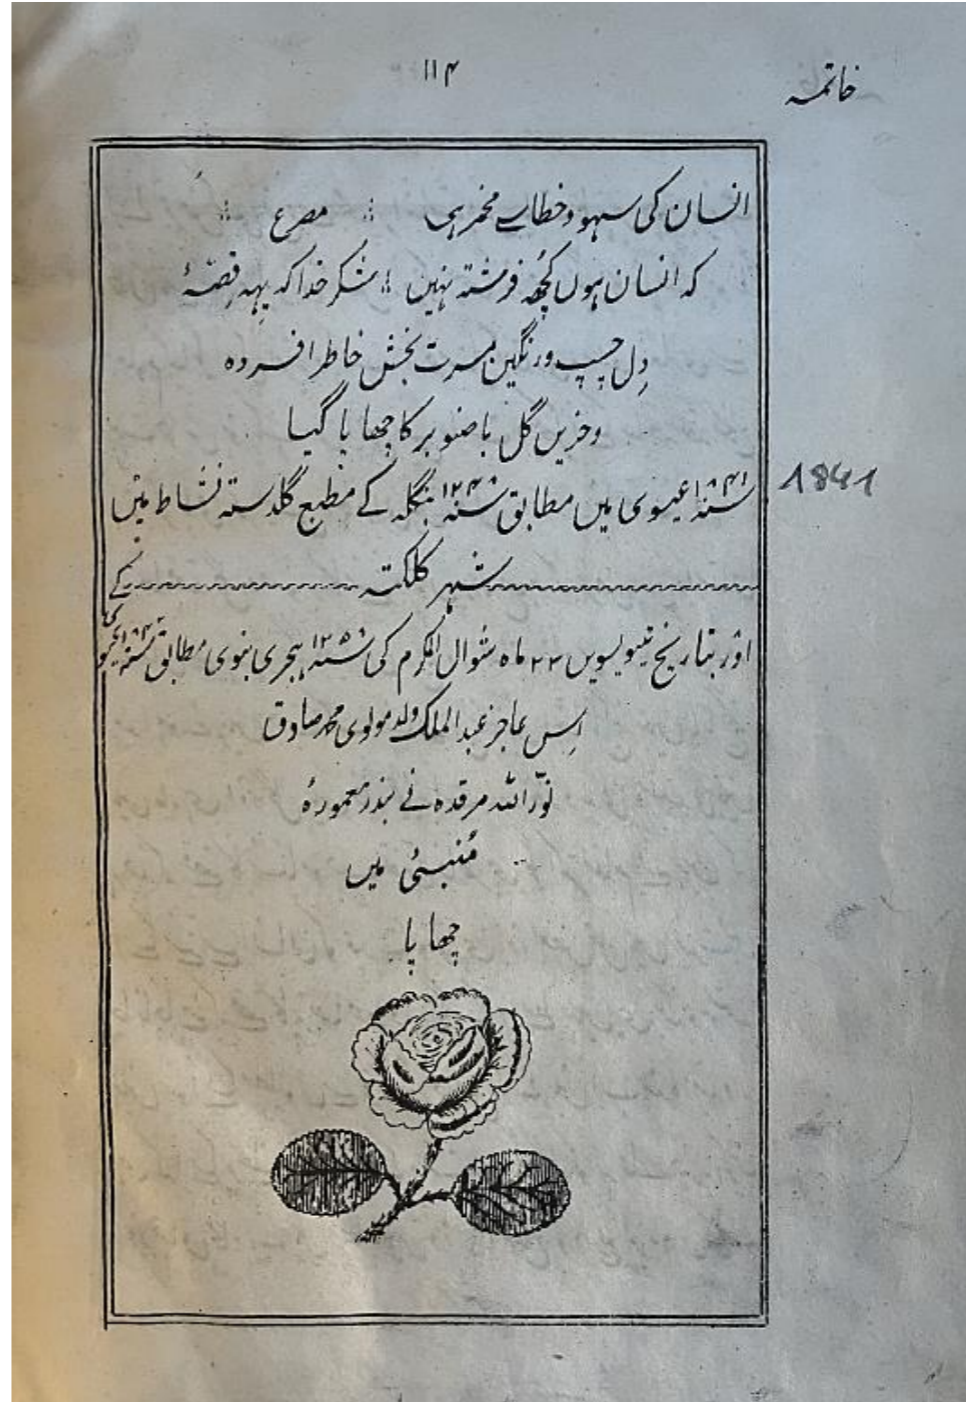 خاتمہ
۱۱۴
انسان کی سہو و خطا سے مخمر ہی ؞ مصرع ؞
کہ انسان ہوں کُچھ فرشتہ نہیں ؞ شکر خدا کہ یِہہ قِصّہٴ
دِل چسپ و رنگین مسرت بخش خاطر افسردہ
و حزیں گل با صنوبر کا چھاپا گیا
سنہ ۱۸۴۱ عیسوی میں مطابق سنہ ۱۲۴۸ بنگلہ کے مطبع گلدستہ نشاط میں
1841
شہر کلکتہ کے
اور بتاریخ تیویسویں ۲۳ ماہ شوال المکرم کی سنہ ۱۲۵۸ ہجری نبوی مطابق سنہ ۱۸۴۲ عیسوی
اِس عاجز عبد الملک ولد مولوی محمد صادق
نوّر اللہ مرقدہ نے بندر معمورہٴ
مُنبئی میں
چھاپا